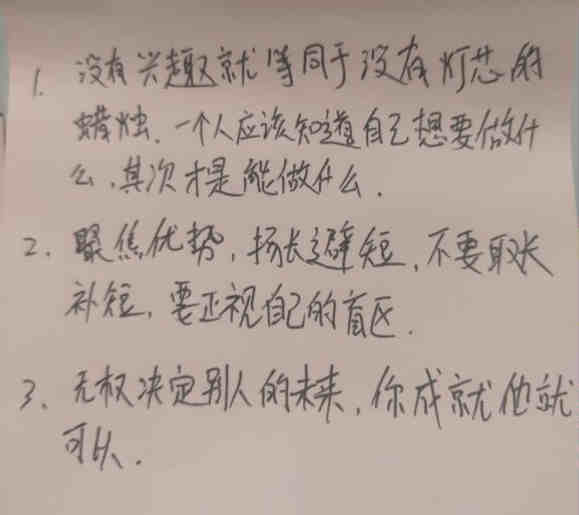 1. 没有兴趣就等同于没有灯芯的
蜡烛、一个人应该知道自己想要做什
么,其次才是能做什么.
2. 聚焦优势,扬长避短,不要取长
补短,要正视自己的盲区.
3、无权决定别人的未来,你成就他就
可以.